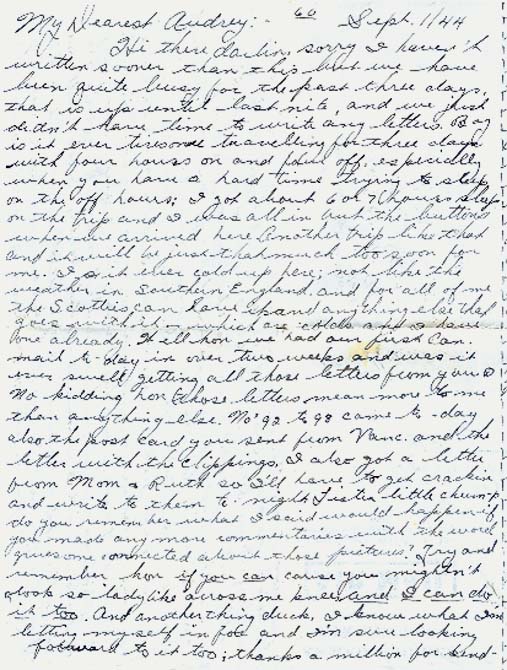 My Dearest Audrey:- 60 Sept. 1/44
Hi there darlin, sorry I haven't
written sooner than this but we have
been quite busy for the past three days,
that is up until last nite, and we just
didn't have time to write any letters. Boy
is it ever tiresome travelling for three days
with four hours on and four off, especially
when you have a hard time trying to sleep
on the off hours; I got about 6 or 7 hours sleep
on the trip and I was all in but the buttons
when we arrived here. Another trip like that
and it will be just that much too soon for
me. Is it ever cold up here; not like the
weather in Southern England, and for all of me
the Scotties can have it and anything else that
goes with it - which are colds and I have
one already. Well hon we had our first Can.
mail to-day in over two weeks and was it
ever swell getting all those letters from you
No kidding hon those letters mean more to me
than anything else. No' 92 to 98 came to-day
also the post card you sent from Vanc. and the
letter with the clippings. I also got a letter
from Mom & Ruth so I'll have to get crackin
and write to them to-night. Listen little chump
do you remember what I said would happen if
you made any more commentaries with the word
gruesome connected about those pictures? Try and
remember hon if you can cause you mightn't
look so ladylike across me knee and I can do
it too. And another thing duck, I know what I'm
letting myself in for and I'm sure looking
forward to it too; thanks a million for send-